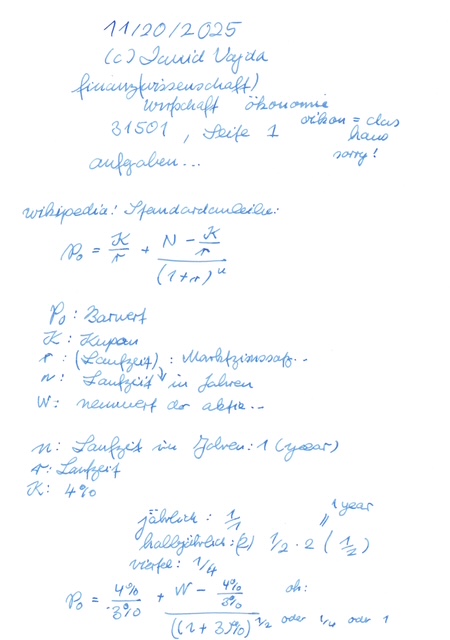 11/20/2025
(c) David Vajda
finanz(wissenschaft)
wirtschaft ökonomie
oikon = das
31501, Seite 1 haus
sorry!
aufgaben...
wikipedia: Standardanleihe:
P₀ = K/r + (N - K/r)/(1+r)ⁿ
P₀: Barwert
K: Kupon
r: (Laufzeit): Marktzinssatz..
n: Laufzeit in Jahren
N: nennwert der aktie..
n: Laufzeit in Jahren: 1 (year)
r: Laufzeit
K: 4%
1 year
jährlich: 1/1
halbjährlich: (2) 1/2 · 2 (1/2)
viertel: 1/4
P₀ = 4%/3% + (N - 4%/3%)/((1+3%)^1/2 oder 1/4 oder 1 oh: